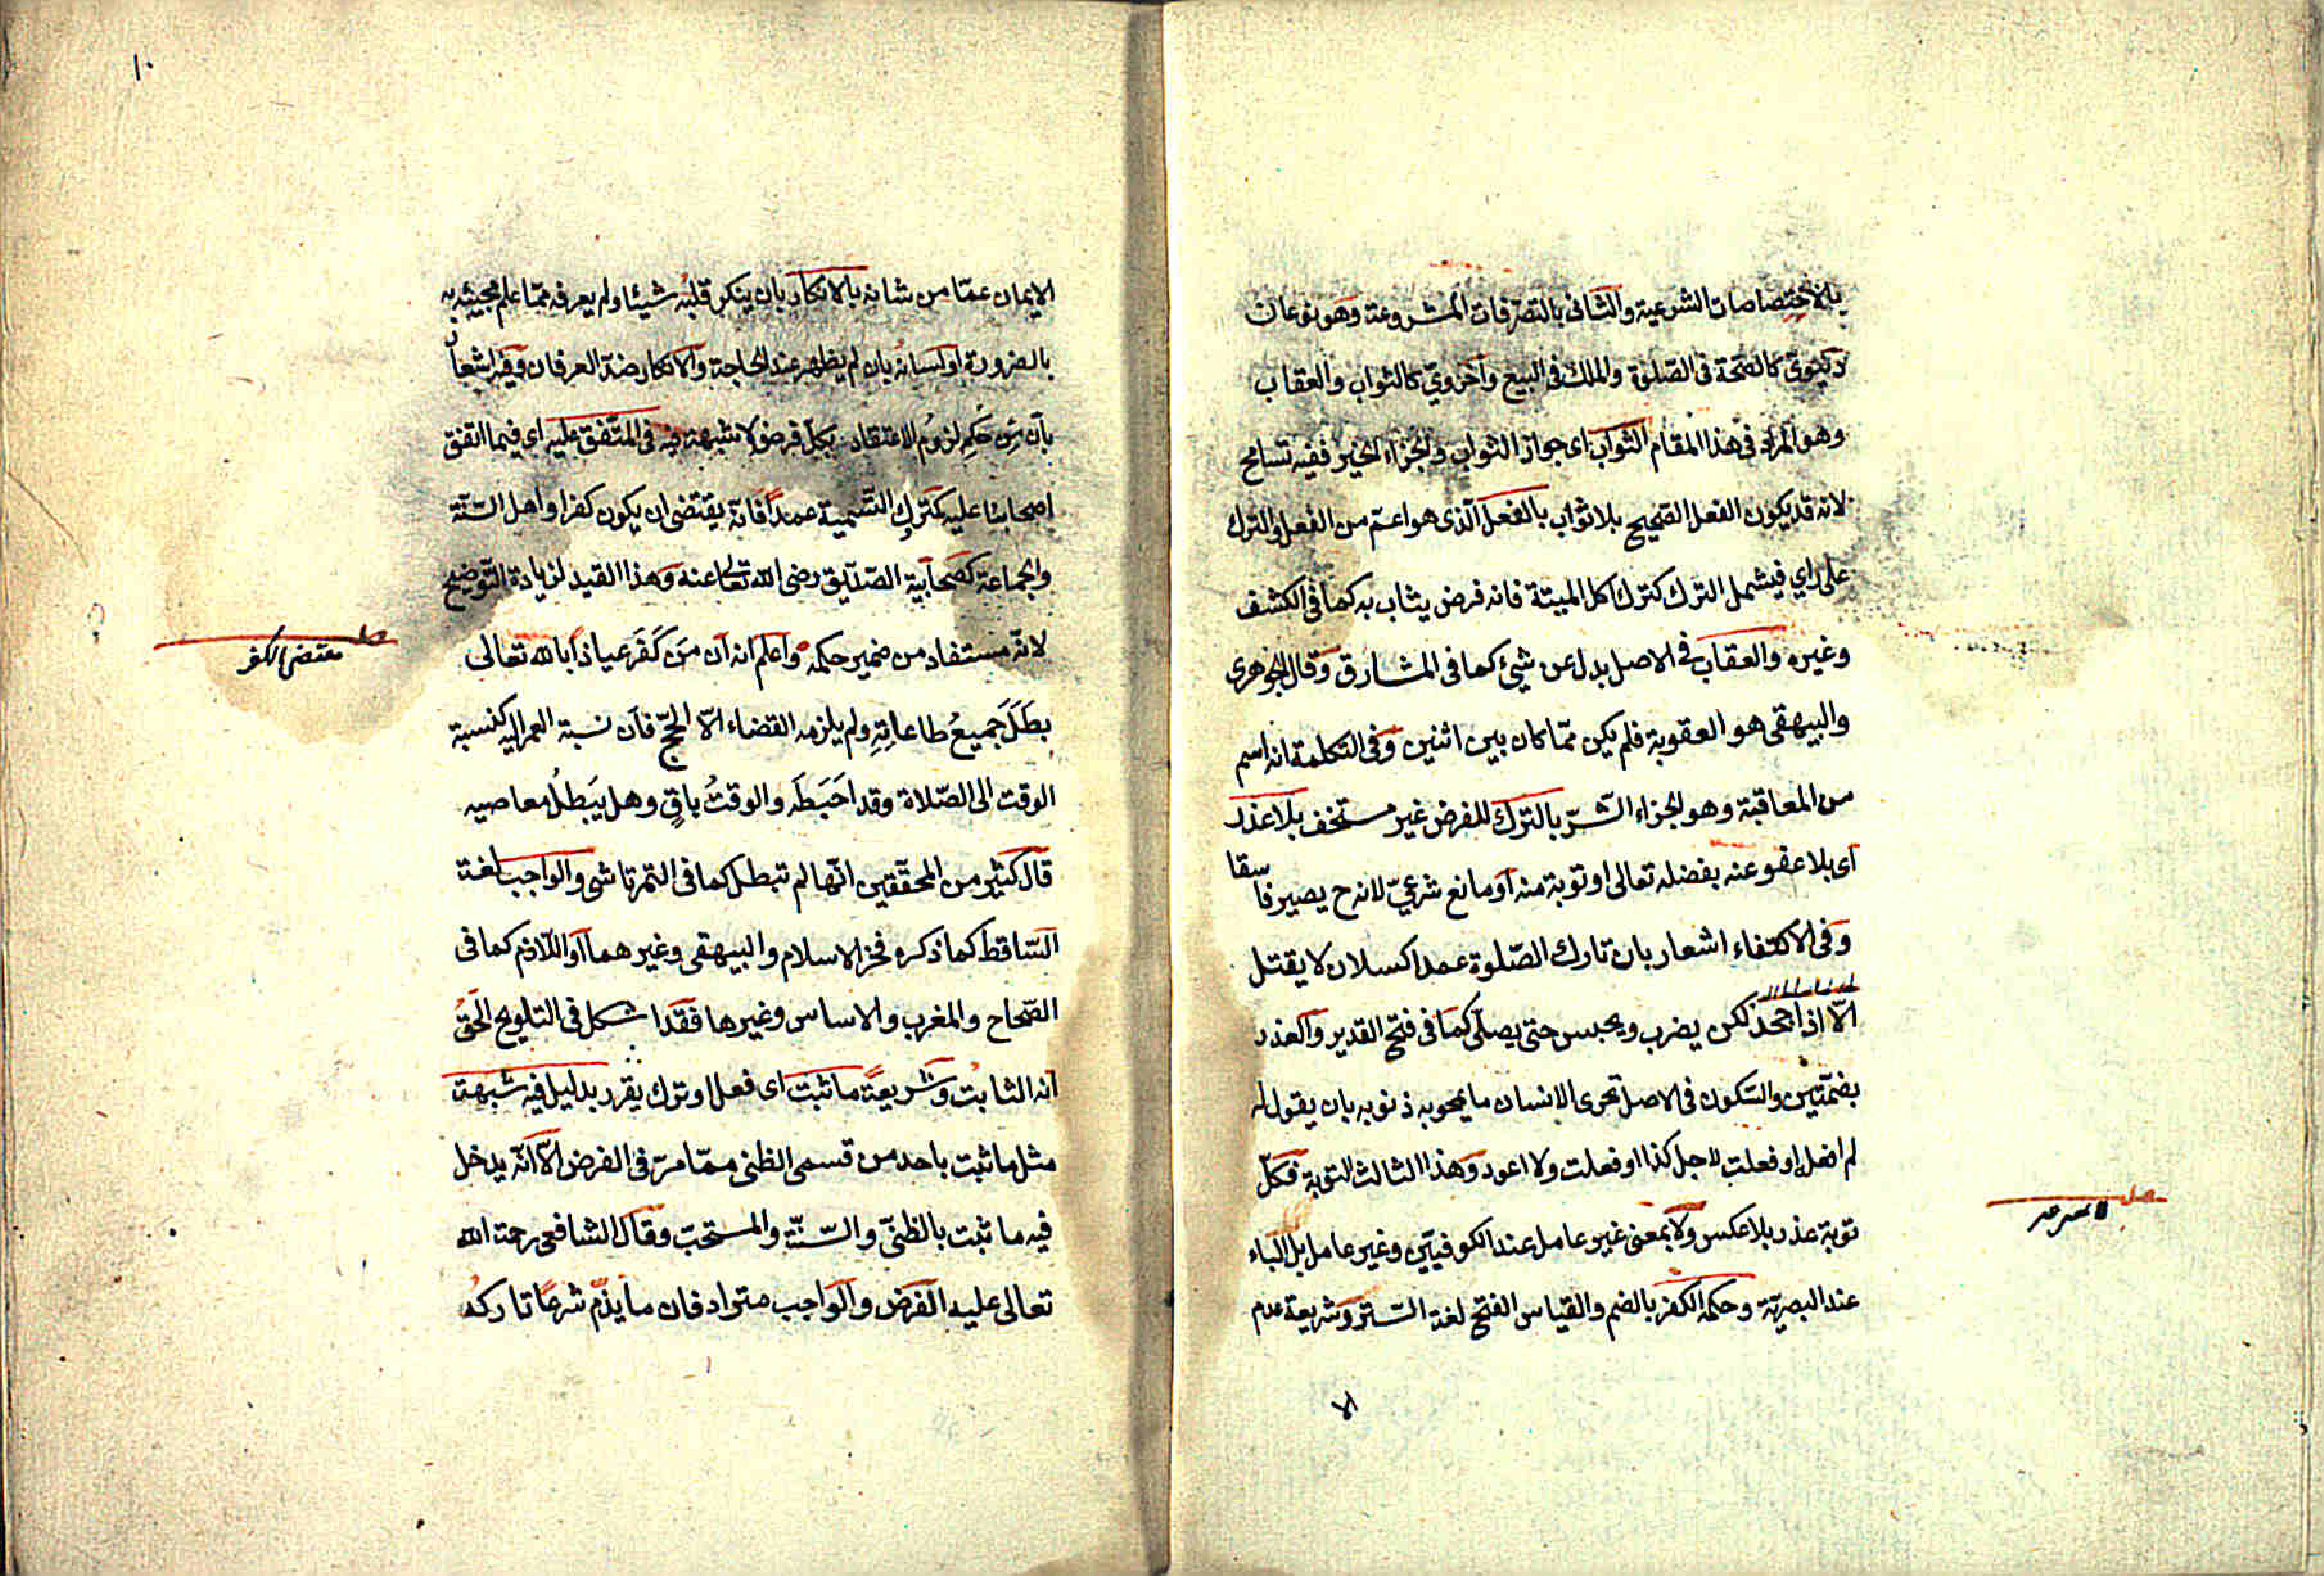 بالاختصاصات الشرعية والثانى بالتصرفات المشروعة وهو نوعان
دنيوى كالصحة فى الصلوة والملك فى البيع واخروي كالثواب والعقاب
وهو المراد فى هذا المقام الثواب اى جواز الثواب والجزاء الخير ففيه تسامح
لانه قد يكون الفعل الصحيح بلا ثواب بالفعل الذى هو اعم من الفعل والترك
على راي فيشمل الترك كترك اكل الميتة فانه فرض يثاب به كما فى الكشف
وغيره والعقاب فى الاصل بدل عن شيئ كما فى المشارق وقال الجوهرى
والبيهقى هو العقوبة فلم يكن ممّا كان بين اثنين وفى التكلمة انه اسم
من المعاقبة وهو الجزاء الشّر بالترك للفرض غير مستخف بلا عذر
اى بلا عفو عنه بفضله تعالى او توبة منه او مانع شرعيّ لانه ح يصير فاسقا
وفى الاكتفاء اشعار بان تارك الصّلوة عمدا كسلان لا يقتل
الّا اذا جحد لكن يضرب ويحبس حتى يصلّى كما فى فتح القدير والعذر
بضمّتين والسّكون فى الاصل تحرى الانسان ما يمحو به ذنوبه بان يقول له
لم افعل او فعلت لاجل كذا او فعلت ولا اعود وهذا الثالث التوبة فكلّ
توبة عذر بلا عكس ولا بمعنى غير عامل عند الكوفييّن وغير عامل بل الباء
عند البصريّة وحكمه الكفر بالضم والقياس الفتح لغة السّتر وشريعة عدم
الا
١٠
الايمان عمّا من شانه بالانكار بان ينكر قلبُه شيئا ولم يعرفه ممّا علم مجيئه به
بالضرورة او لسانه بان لم يظهر عند الحاجة والانكار ضدّ العرفان وفيه اشعار
بان من حكمه لزوم الاعتقاد بكل فرض لا شبهة فيه فى المتّفق عليه اى فيما اتفق
اصحابنا عليه كترك التّسمية عمداً فانّه يقتضى ان يكون كفرا او اهل السّنّة
والجماعة كصحابية الصّدّيق رضى الله تعالى عنه وهذا القيد لزيادة التّوضيح
لانّه مستفاد من ضمير حكمه واعلم انه ان مَن كَفَرَ عياذاً بالله تعالى
مقتضى الكفر
بطَلَ جميعُ طاعاتِهِ ولم يلزمه القضاء الّا الحجّ فان نسبة العمر اليه كنسبة
الوقت الى الصّلاة وقد احَبَطَه والوقتُ باقٍ وهل يَبطلُ معاصيه
قال كثير من المحقّقين انّها لم تبطل كما فى التمرتاشى والواجب لغة
السّاقط كما ذكره فخر الاسلام والبيهقى وغيرهما او اللّازم كما فى
الصّحاح والمغرب والاساس وغيرها فقد اشكل فى التلويح الحَقُّ
انه الثابت وشريعةً ما ثبت اى فعل او ترك يقرر بدليل فيه شبهة
مثل ما ثبت باحد من قسمى الظنى ممّا مرّ فى الفرض الّا انّه يدخل
فيه ما ثبت بالظنّيّ والسّنّة والمستحبّ وقال الشافعى رحمة الله
تعالى عليه الفرض والواجب مترادفان ما يذمّ شرعاً تاركه